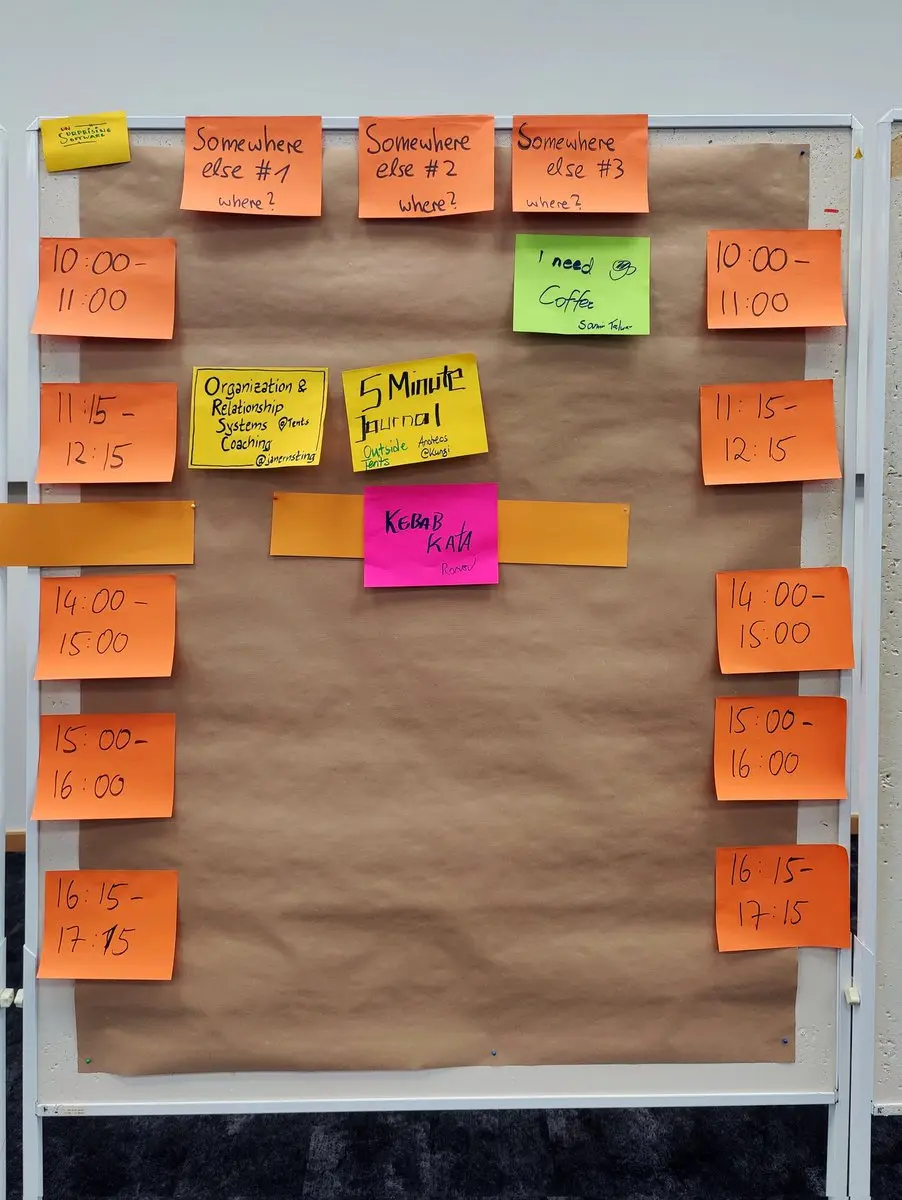 un
Surprising
Software
Somewhere
else #1
where?
Somewhere
else #2
where?
Somewhere
else #3
where?
10:00-
11:00
I need
Coffee
10:00-
11:00
11:15-
12:15
Organization &
Relationship
Systems @Tents
Coaching
@janernsting
5 Minute
Journal
Outside
Tents
Andreas
11:15-
12:15
KEBAB
KATA
14:00-
15:00
14:00-
15:00
15:00-
16:00
15:00-
16:00
16:15-
17:15
16:15-
17:15